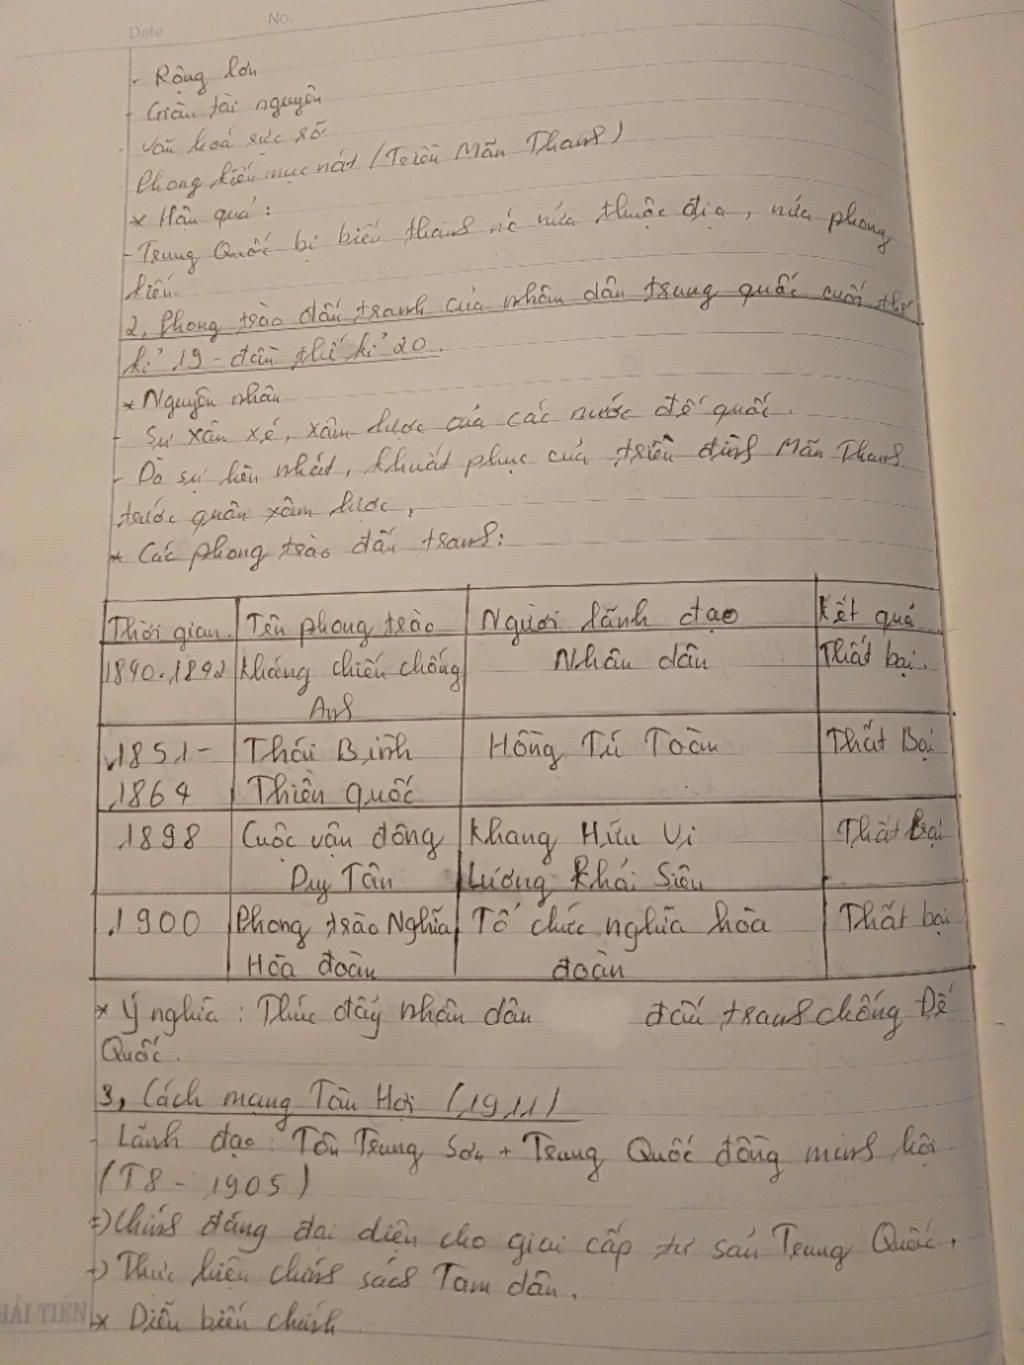 Date No.
- Rộng lớn
- Giàu tài nguyên
- Văn hoá rực rỡ
Phong kiến mục nát (Triều Mãn Thanh)
* Hậu quả:
- Trung Quốc bị biến thành nc nửa thuộc địa, nửa phong
kiến.
2, Phong trào đấu tranh của nhân dân trung quốc cuối thế
kỉ 19 - đầu thế kỉ 20.
* Nguyên nhân
- Sự xâu xé, xâm lược của các nước đế quốc.
- Do sự hèn nhát, khuất phục của triều đình Mãn Thanh
trước quân xâm lược.
* Các phong trào đấu tranh:
Thời gian Tên phong trào Người lãnh đạo Kết quả
1840-1842 Kháng chiến chống Nhân dân Thất bại.
Anh
1851- Thái Bình Hồng Tú Toàn Thất Bại
1864 Thiên quốc
1898 Cuộc vận động Khang Hữu Vi Thất bại
Duy Tân Lương Khải Siêu
1900 Phong trào Nghĩa Tổ chức nghĩa hòa Thất bại
Hòa đoàn đoàn
* Ý nghĩa: Thúc đẩy nhân dân đấu tranh chống Đế
Quốc.
3, Cách mạng Tân Hợi (1911)
- Lãnh đạo: Tôn Trung Sơn + Trung Quốc đồng minh hội
(T8 - 1905)
=> Chính đảng đại diện cho giai cấp tư sản Trung Quốc.
-> Thực hiện chính sách Tam dân.
* Diễn biến chính
HẢI TIẾN